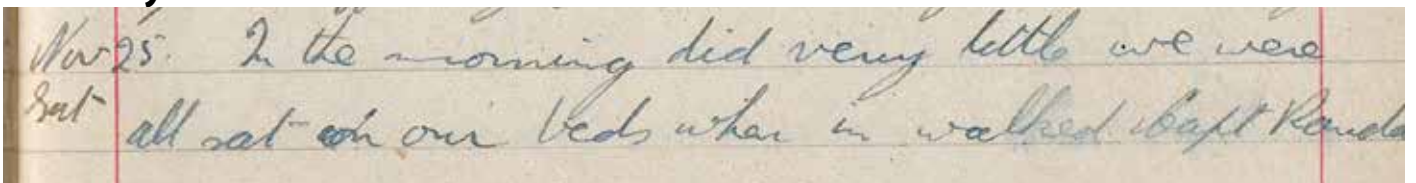 Nov 25. In the morning did very little we were
Sat all sat on our beds when in walked Capt Randa